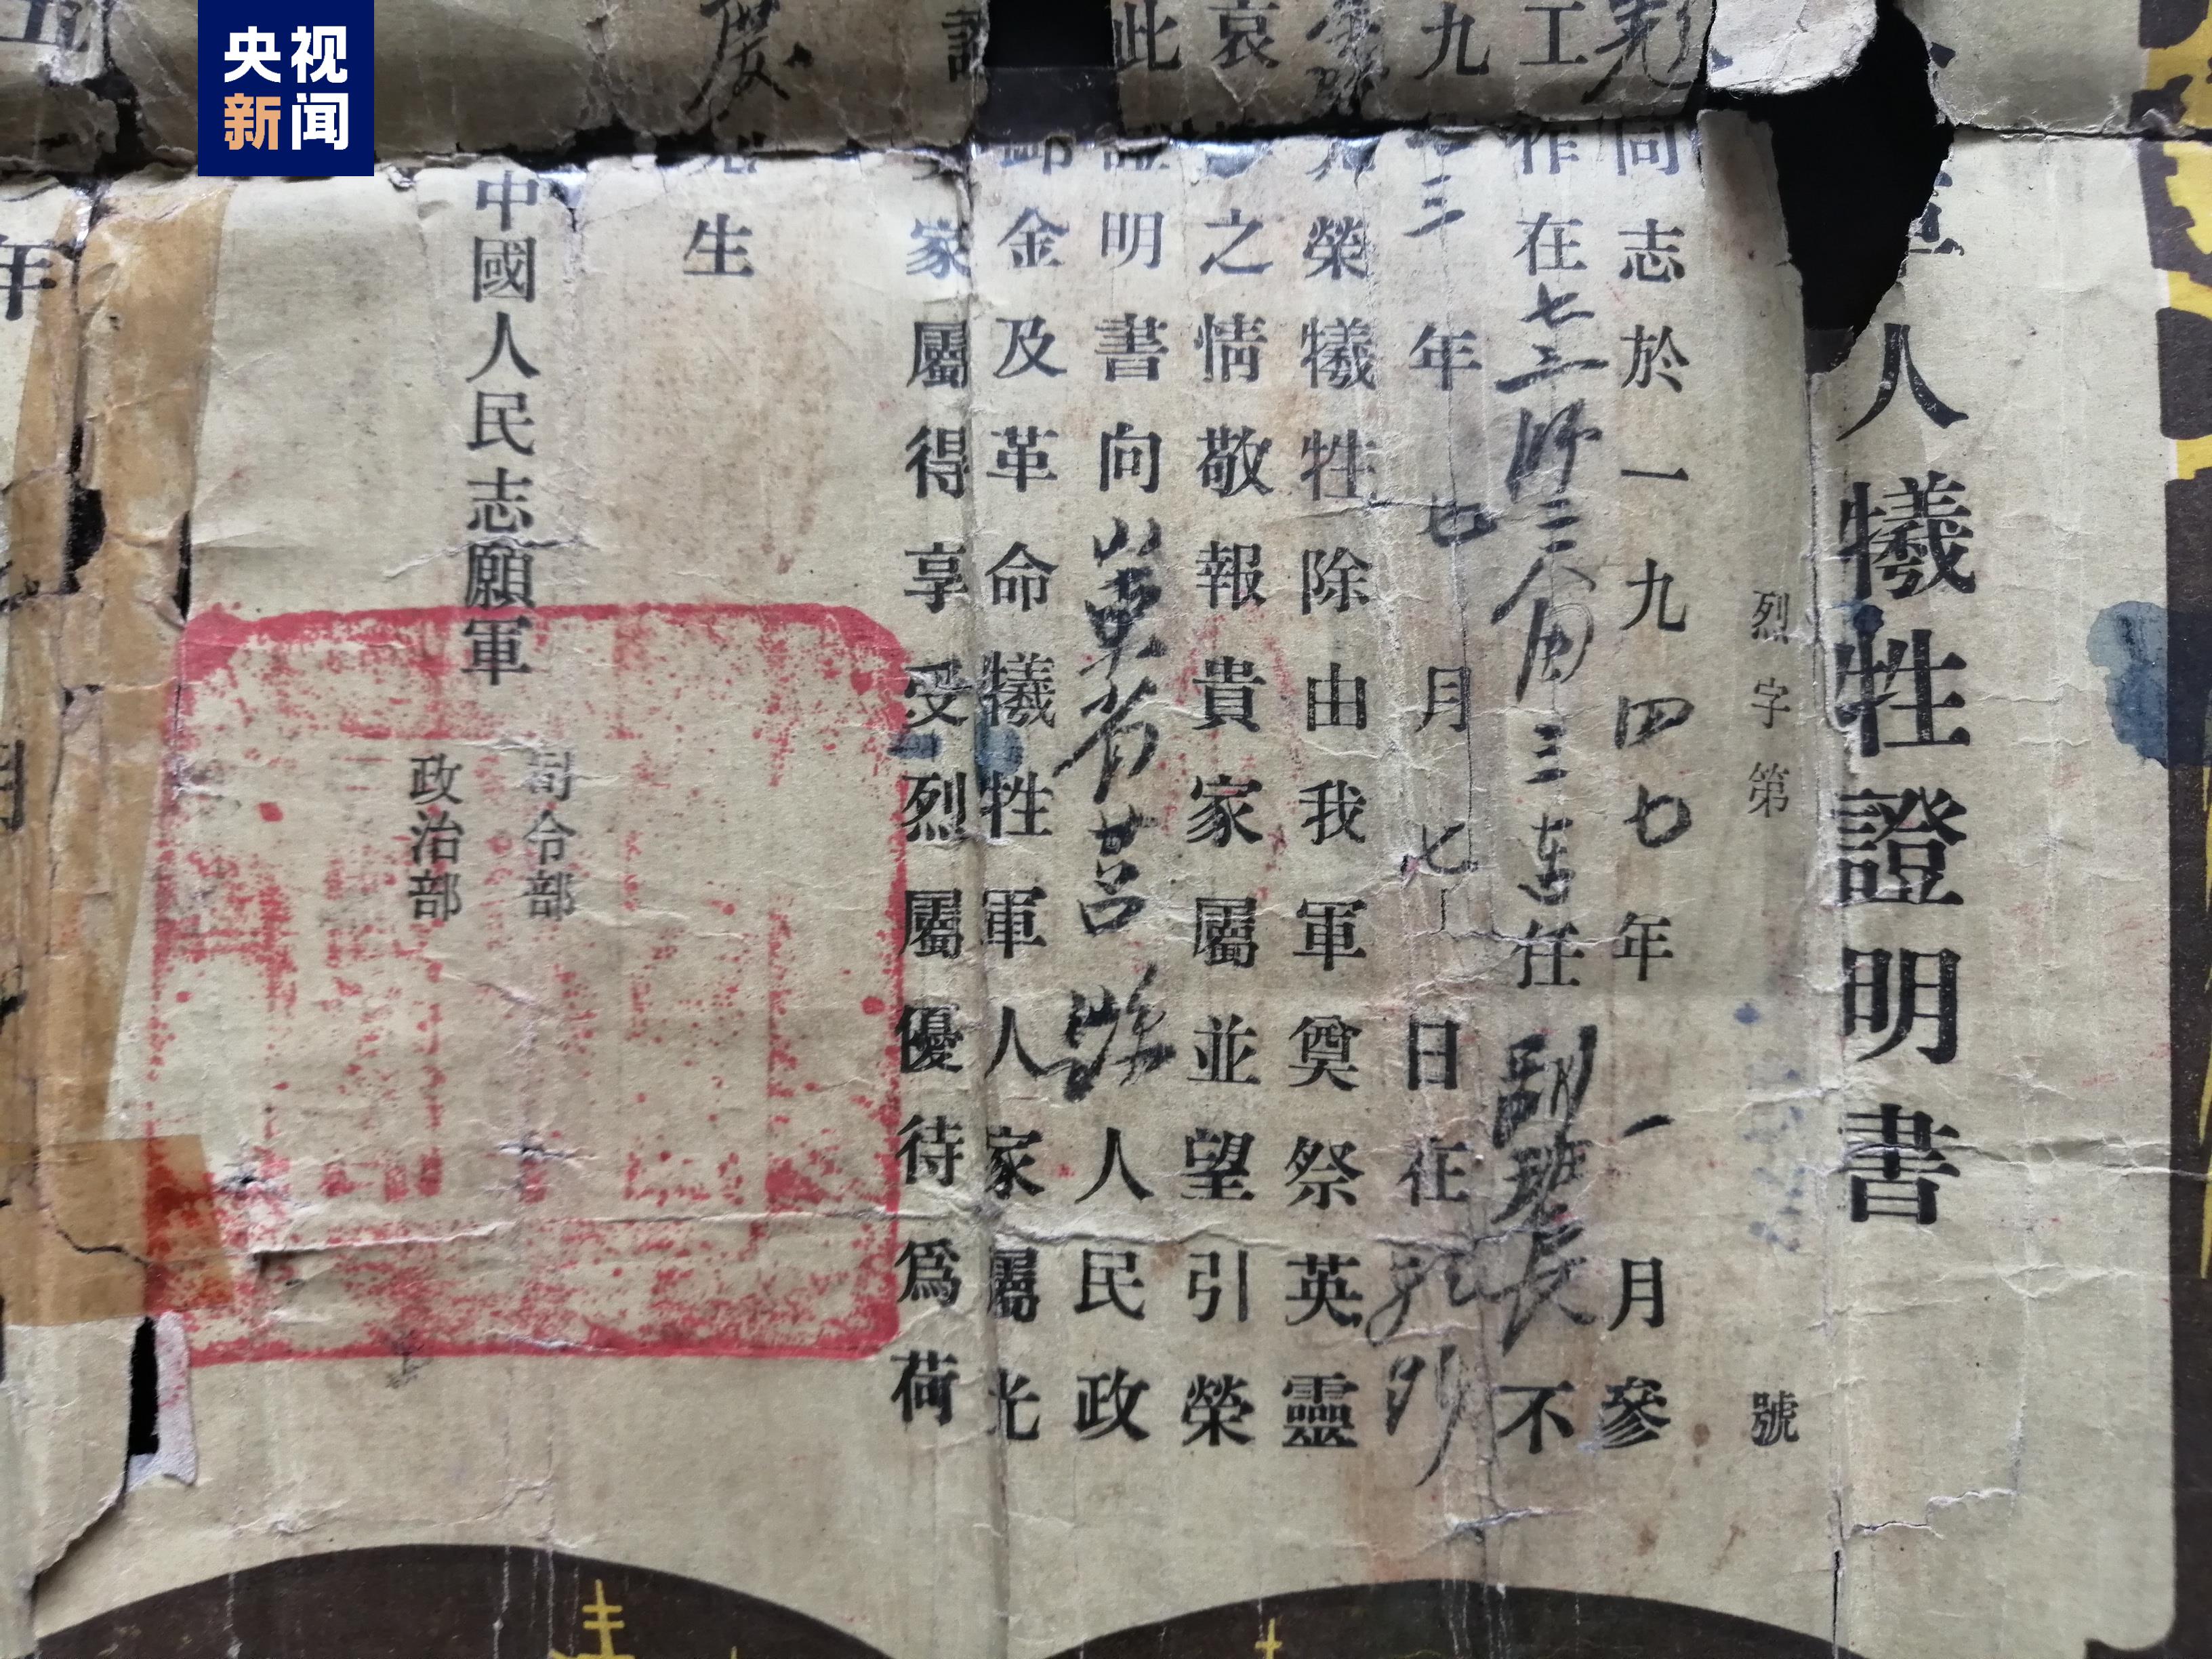 央视
新闻
人犧牲證明書
烈字第 號
同志於一九四七年一月參
工作在七三师二一八团三连任副班长不
九 三年七月七日在 
光榮犧牲除由我軍奠祭英靈
哀 之情敬報貴家屬並望引榮
此證明書向山東省莒 人民政
卹金及革命犧牲軍人家屬光
家屬得享受烈屬優待爲荷
慶 先生
中國人民志願軍
司令部
政治部
年
月